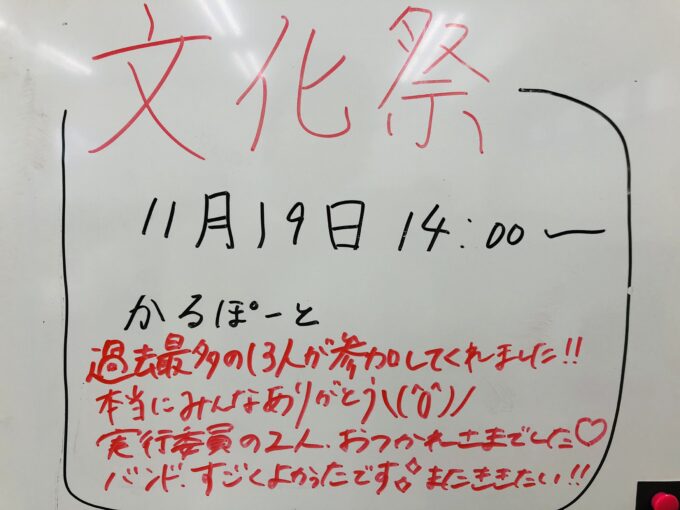 文化祭
11月19日 14:00〜
かるぽーと
過去最多の13人が参加してくれました!!
本当にみんなありがとう\(^0^)/
実行委員の2人、おつかれさまでした♡
バンド、すごくよかったです。またききたい!!